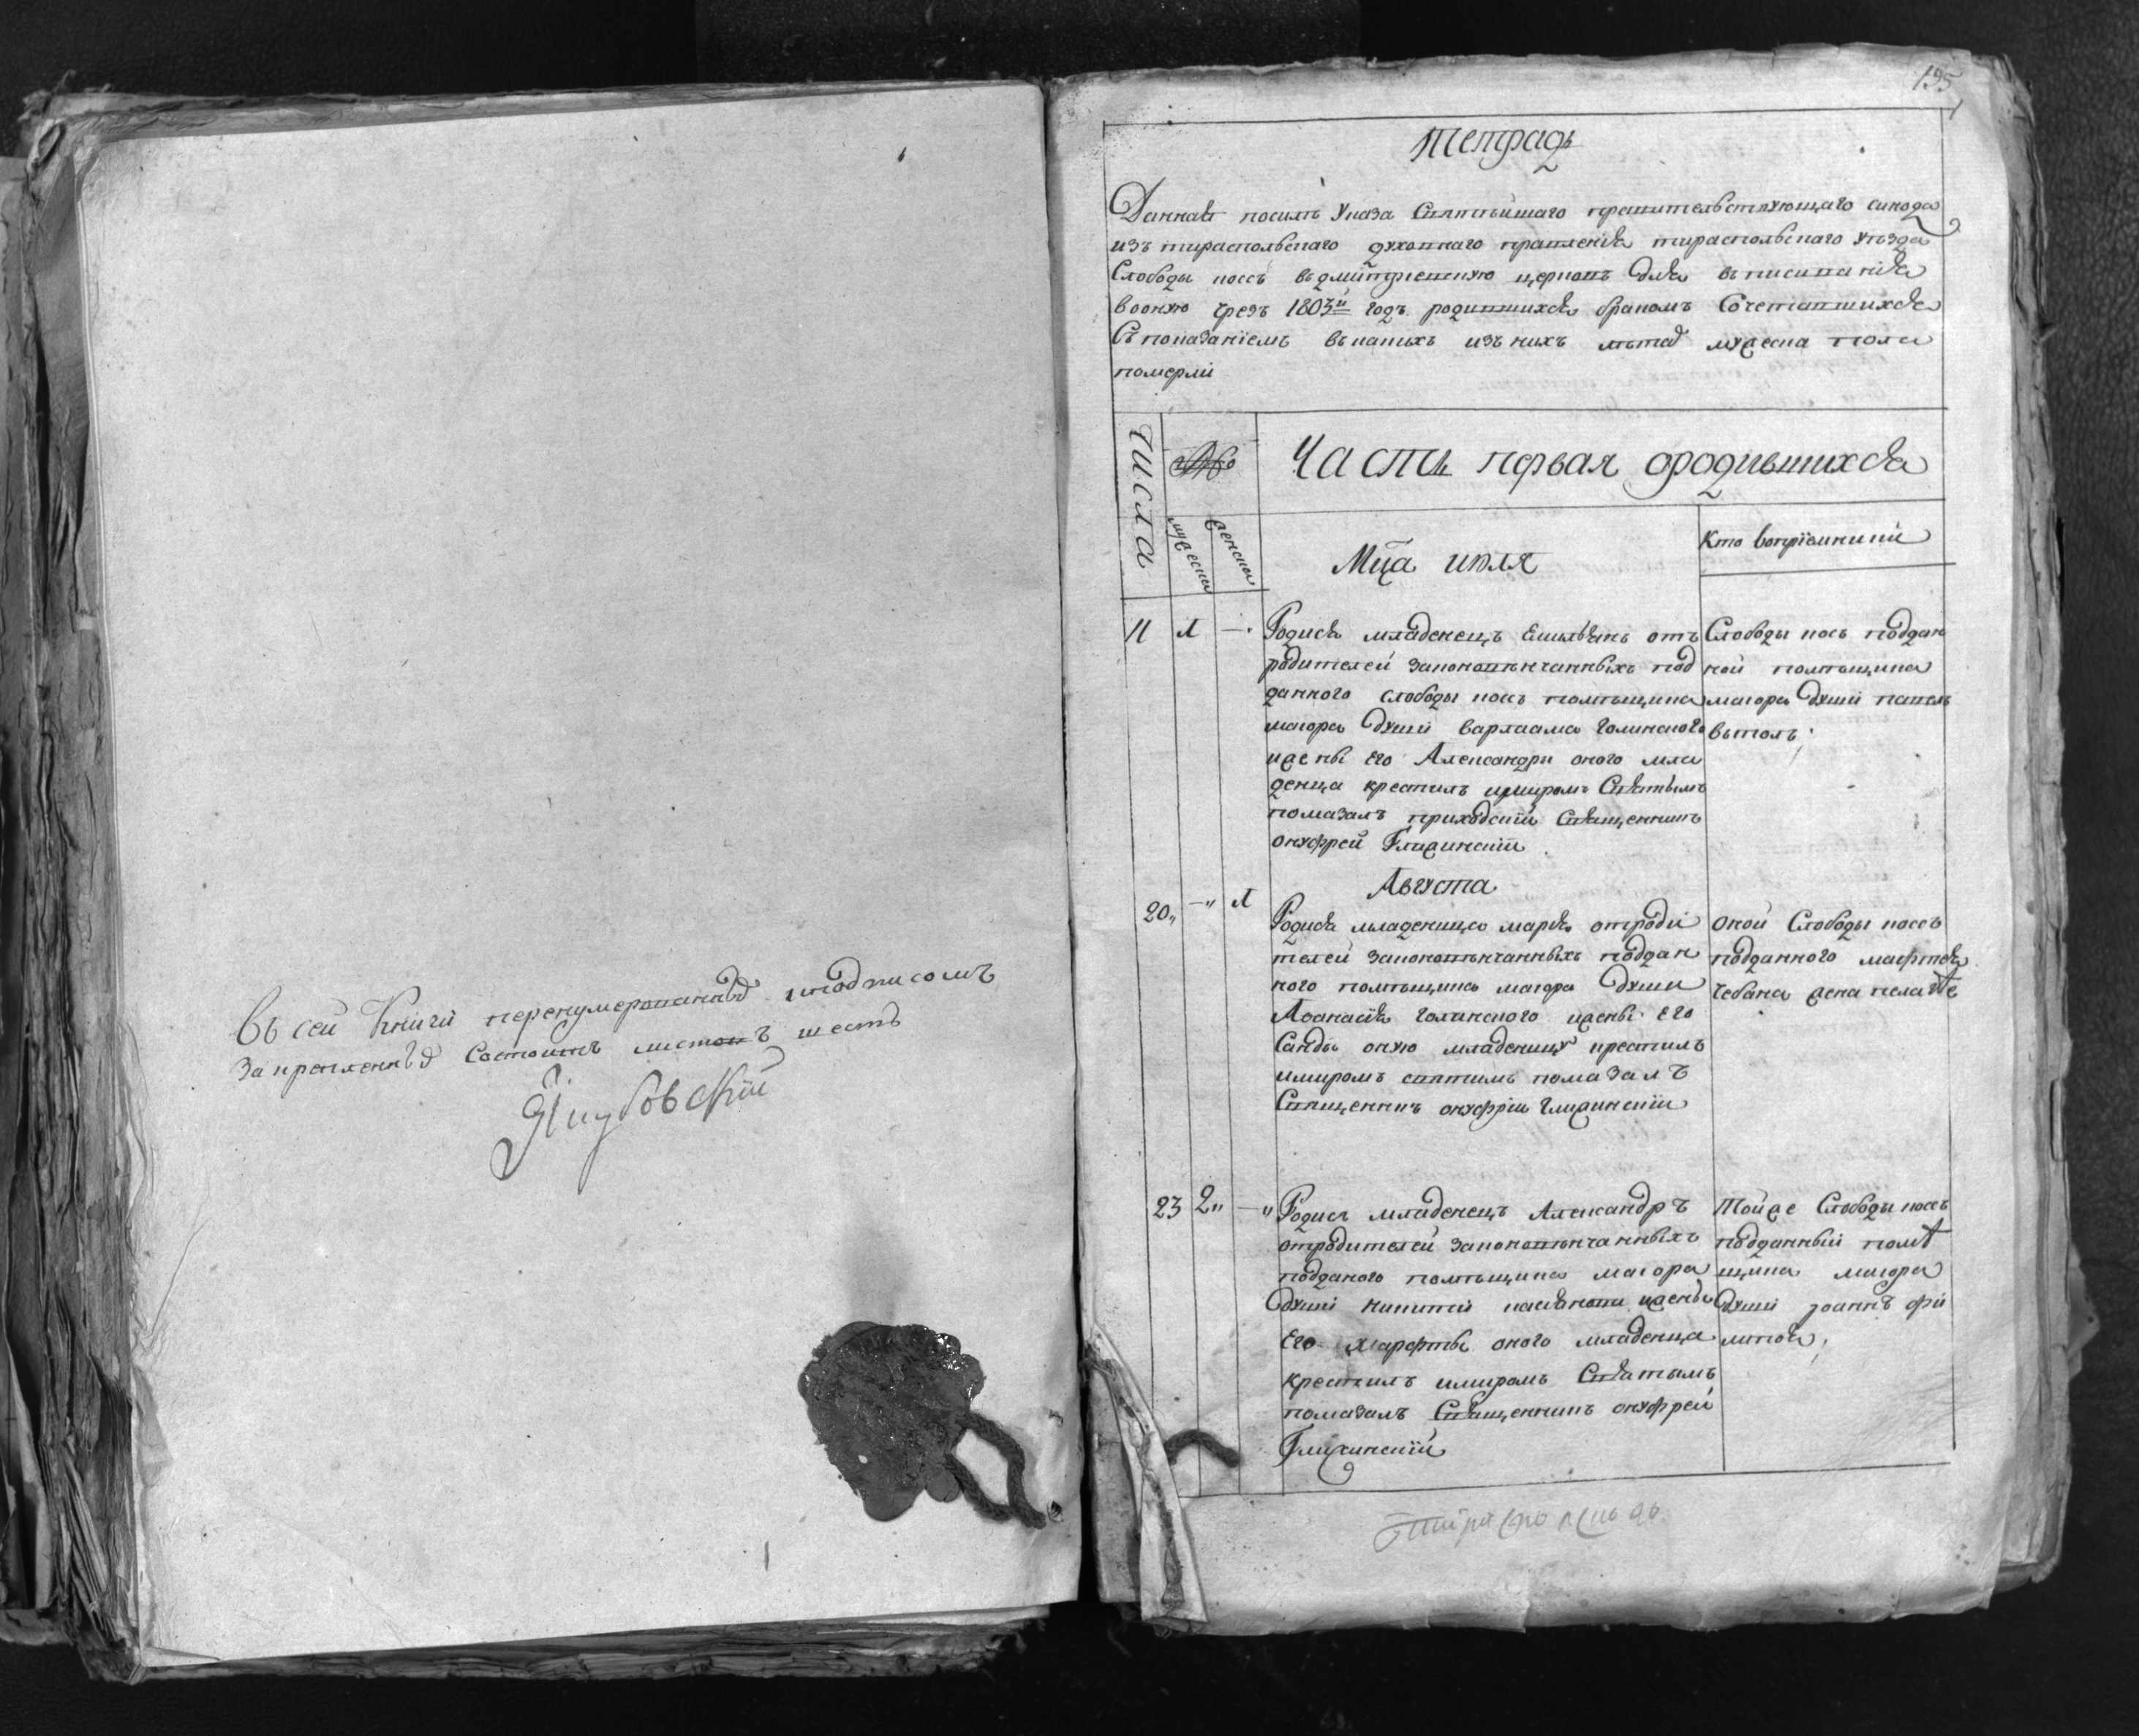 въ сей Книги перенумерованныхъ иподписомъ
Закрепленныхъ Состоитъ листовъ шесть
195
Тетрадь
Данная посилѣ Указа Святѣйшаго правителствующаго синода
изъ тираспольскаго духовнаго правленія тираспольскаго уѣзда
Слободы коссъ въ дмитріевскую церковъ для вписиванія
воную чрезъ 1803й годъ родившихся бракомъ Сочетавшихся
Съ показаніемъ въ какихъ изъ нихъ лѣтах мужеска пола
померли
Числа
Часть первая ородившихся
мужеска
женска
Мца июля
Кто воприемники
11 1 —
Родися младенецъ Емильянъ отъ
родителей законовѣнчанныхъ под
данного слободы коссъ помѣщика
магора Дуки варлаама Голинского
ижены Его Александри оного мла
денца крестилъ имиромъ Святымъ
помазалъ приходскій Священникъ
онуфрей Глижинскій
Слободы косъ поддан
ной помѣщика
магора Дуки павелъ
витолъ
Августа
20 — 1
Родися младеница мария отроди
телей законовѣнчанныхъ поддан
ного помѣщика магора Дуки
Афанасія Голинского ижены Его
Санды оную младеницу крестилъ
имиромъ святимъ помазалъ
Священникъ онуфрій Глижинскій
Оной Слободы коссъ
подданного
чебана жена пелагѣе
23 2 —
Родися младенецъ Александръ
отродителей законовѣнчанныхъ
подданого помѣщика магора
Дуки никитей ижены
Его Марфты оного младенца
крестилъ имиромъ Святымъ
помазалъ Священникъ онуфрей
Глижинскій
Тойже Слободы коссъ
подданный помѣ
щика магора
Дуки Іоаннъ фи